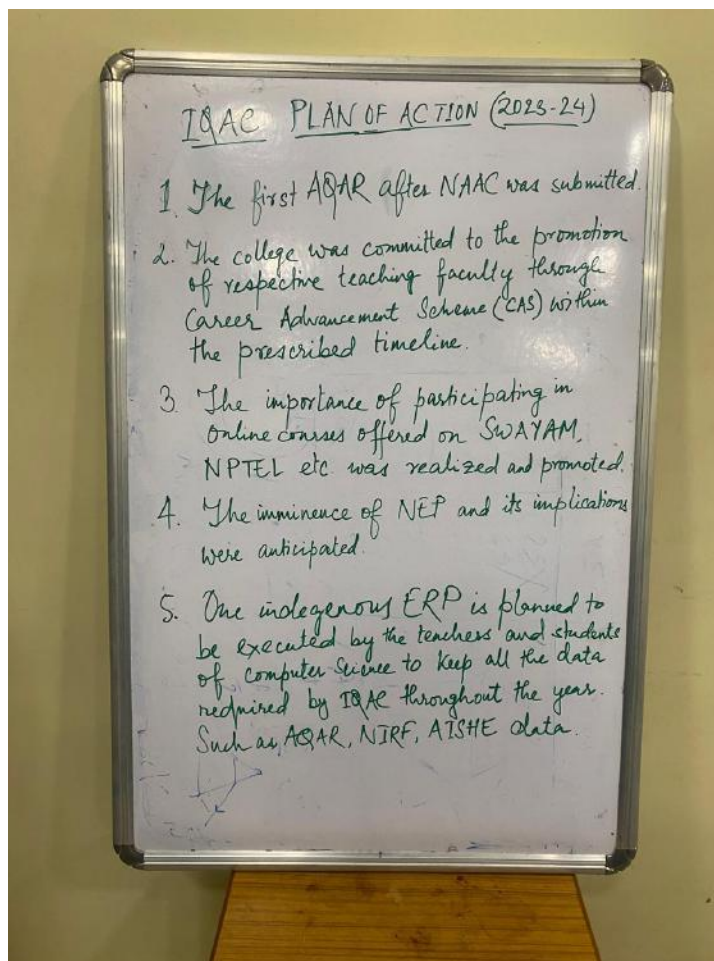 IQAC PLAN OF ACTION (2023-24)
1. The first AQAR after NAAC was submitted.
2. The college was committed to the promotion
of respective teaching faculty through
Career Advancement Scheme (CAS) within
the prescribed timeline.
3. The importance of participating in
online courses offered on SWAYAM,
NPTEL etc was realized and promoted.
4. The imminence of NEP and its implications
were anticipated.
5. One indegenous ERP is planned to
be executed by the teachers and students
of computer science to keep all the data
required by IQAC throughout the year.
Such as, AQAR, NIRF, AISHE data.